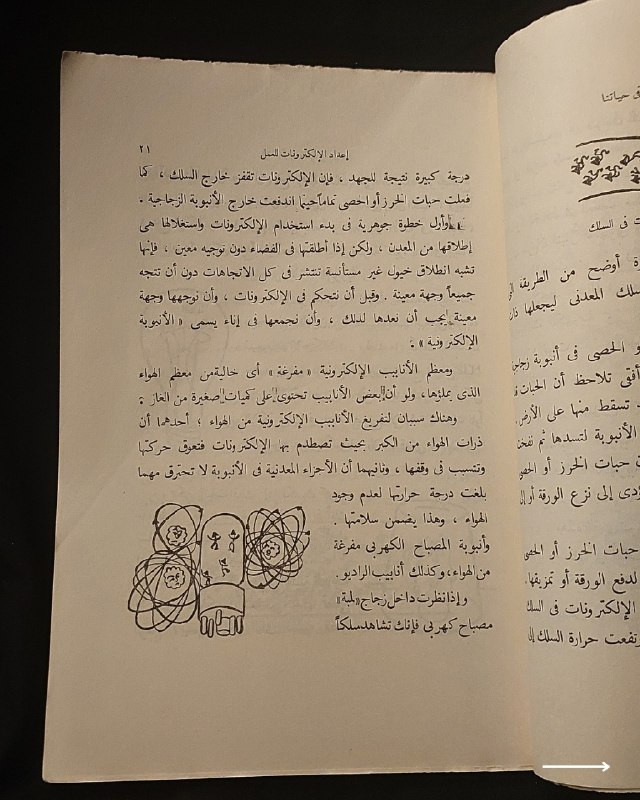 إعداد الإلكترونات للعمل
٢١
درجة كبيرة نتيجة للجهد ، فإن الإلكترونات تقفز خارج السلك ، كما
فعلت حبات الخرز أو الحصى تماماً حينما اندفعت خارج الأنبوبة الزجاجية .
وأول خطوة جوهرية فى بدء استخدام الإلكترونات واستغلالها هى
إطلاقها من المعدن ، ولكن إذا أطلقتها فى الفضاء دون توجيه معين ، فإنها
تشبه انطلاق خيول غير مستأنسة تنتشر فى كل الاتجاهات دون أن تتجه
جميعاً وجهة معينة . وقبل أن نتحكم فى الإلكترونات ، وأن نوجهها وجهة
معينة يجب أن نعدها لذلك ، وأن نجمعها فى إناء يسمى « الأنبوبة
الإلكترونية » .
ومعظم الأنابيب الإلكترونية « مفرغة » أى خالية من معظم الهواء
الذى يملؤها، ولو أن بعض الأنابيب تحتوى على كميات صغيرة من الغاز .
وهناك سببان لتفريغ الأنابيب الإلكترونية من الهواء ؛ أحدهما أن
ذرات الهواء من الكبر بحيث تصطدم بها الإلكترونات فتعوق حركتها
وتتسبب فى وقفها ، وثانيهما أن الأجزاء المعدنية فى الأنبوبة لا تحترق مهما
بلغت درجة حرارتها لعدم وجود
الهواء ، وهذا يضمن سلامتها .
وأنبوبة المصباح الكهربى مفرغة
من الهواء، وكذلك أنابيب الراديو .
وإذا نظرت داخل زجاج «لمبة»
مصباح كهربى فإنك تشاهد سلكاً
فى حياتنا
ت فى السلك
ة أوضح من الطريقة التى
سلك المعدنى ليجعلها
و الحصى فى أنبوبة زجاجية
أفقى تلاحظ أن الحبات
تسقط منها على الأرض
الأنبوبة لتسدها ثم نفخت
حبات الخرز أو الحصى
ؤدى إلى نزع الورقة أو
حبات الخرز أو الحصى
لدفع الورقة أو تمزيقها
الإلكترونات فى السلك
رتفعت حرارة السلك إلى